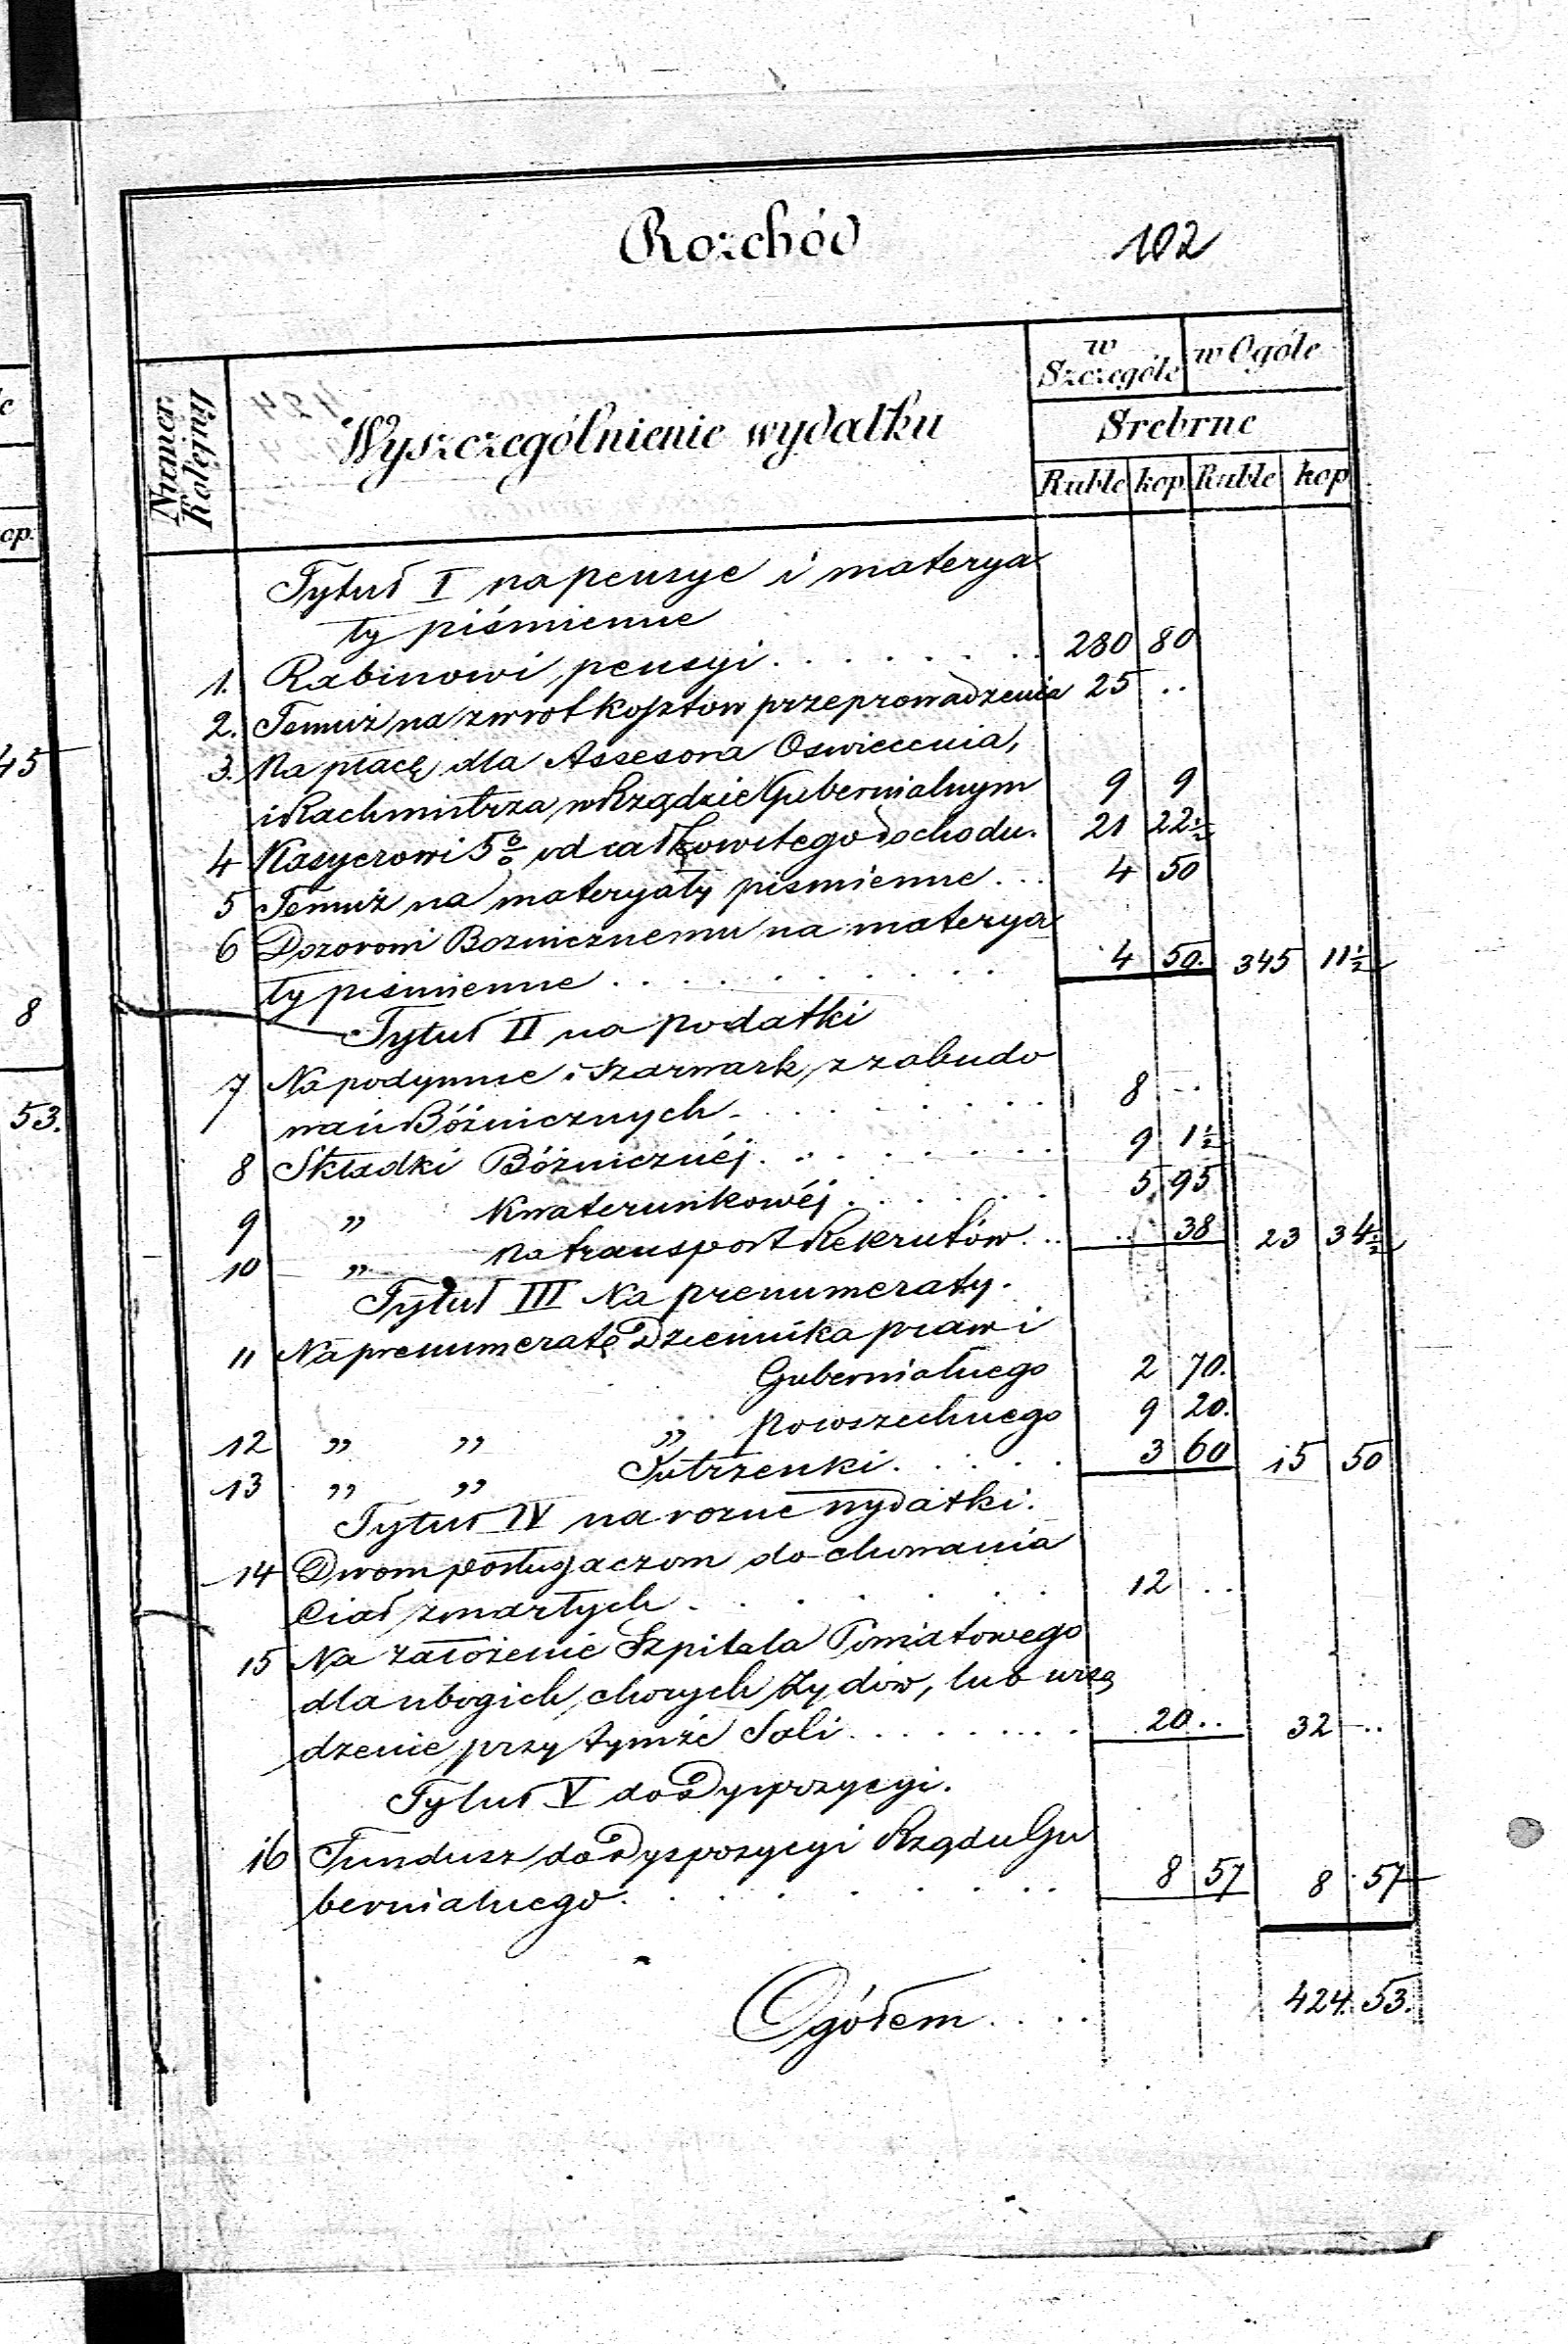 Rozchód 102
Numer Kolejny
Wyszczególnienie wydatku
w Szczególe
w Ogóle
Srebrne
Ruble kop Ruble kop
c
op.
45
8
53.
Tytuł I na pensye i materya
ły piśmienne
1. Rabinowi pensyi . . . . . . . 280 80
2. Temuż na zwrot kosztow przeprowadzenia 25 ..
3. Na płacę dla Assesora Oswiecenia,
i Rachmistrza w Rządzie Gubernialnym 9 9
4 Kasyerowi 5% od całkowitego dochodu. 21 22½
5 Temuż na materyały pismienne . . . 4 50
6 Dozorowi Boznicznemu na materya
ły pismienne . . . . . . . . 4 50. 345 11½
Tytuł II na podatki
7 Na podymne i szarwark z zabudo
wań Bóżnicznych . . . . . . . 8 ..
8 Składki Bóżniczněj . . . . . . . 9 1½
9 „ Kwaterunkowéj . . . . . . 5 95
10 „ Na transport Rekrutów . . .. 38 23 34½
Tytuł III Na prenumeraty.
11 Na prenumeratę Dziennika praw i
Gubernialnego 2 70.
12 „ „ „ powszechnego 9 20.
13 „ „ Jutrzenki . . . . . 3 60 15 50
Tytuł IV na rozne wydatki.
14 Dwom posługaczom do chowania
Ciał zmarłych . . . . . . . 12 ..
15 Na założenie Szpitala Powiatowego
dla ubogich chorych Żydów, lub urzą
dzenie przy tymże Sali . . . . . . . 20 .. 32 ..
Tytuł V do Dyspozycyi.
16 Fundusz do Dyspozycyi Rządu Gu
bernialnego . . . . . . . . . 8 57 8 57
Ogółem . . . . 424. 53.